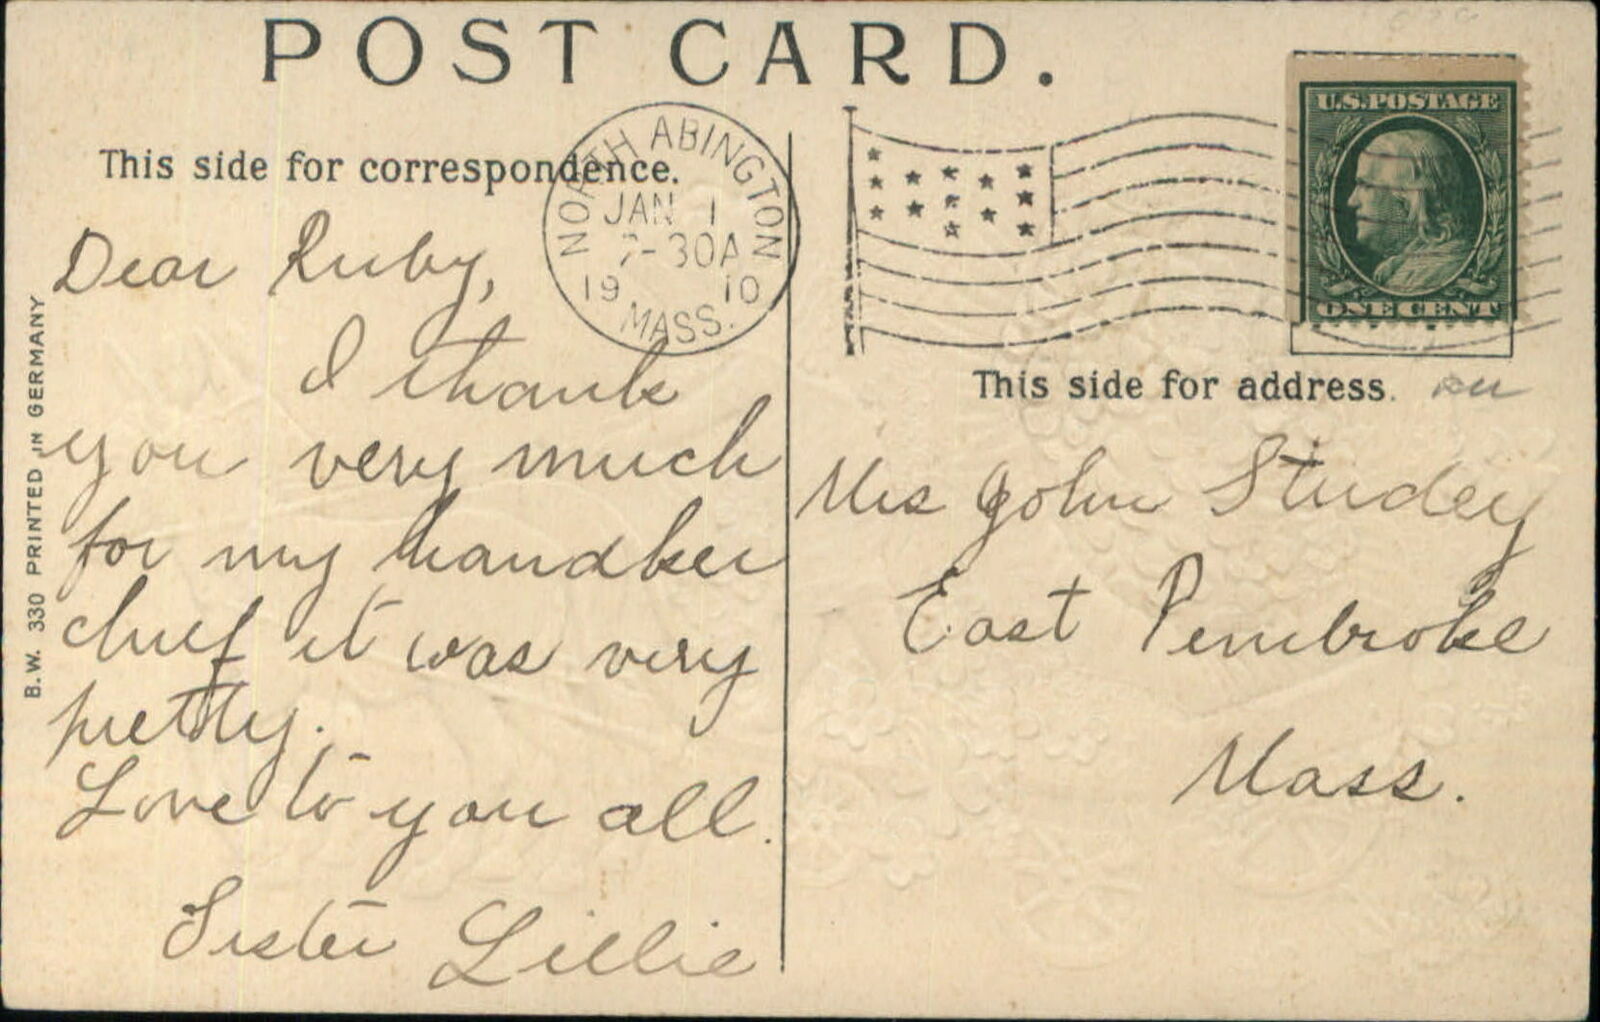 POST CARD.
This side for correspondence.
NORTH ABINGTON
JAN 1
7-30A
1910
MASS.
U.S. POSTAGE
ONE CENT
This side for address.
Dear Ruby,
I thank
you very much
for my handker
chief it was very
pretty.
Love to you all.
Sister Lillie
Mrs John Studey
East Pembroke
Mass.
B.W. 330 PRINTED IN GERMANY